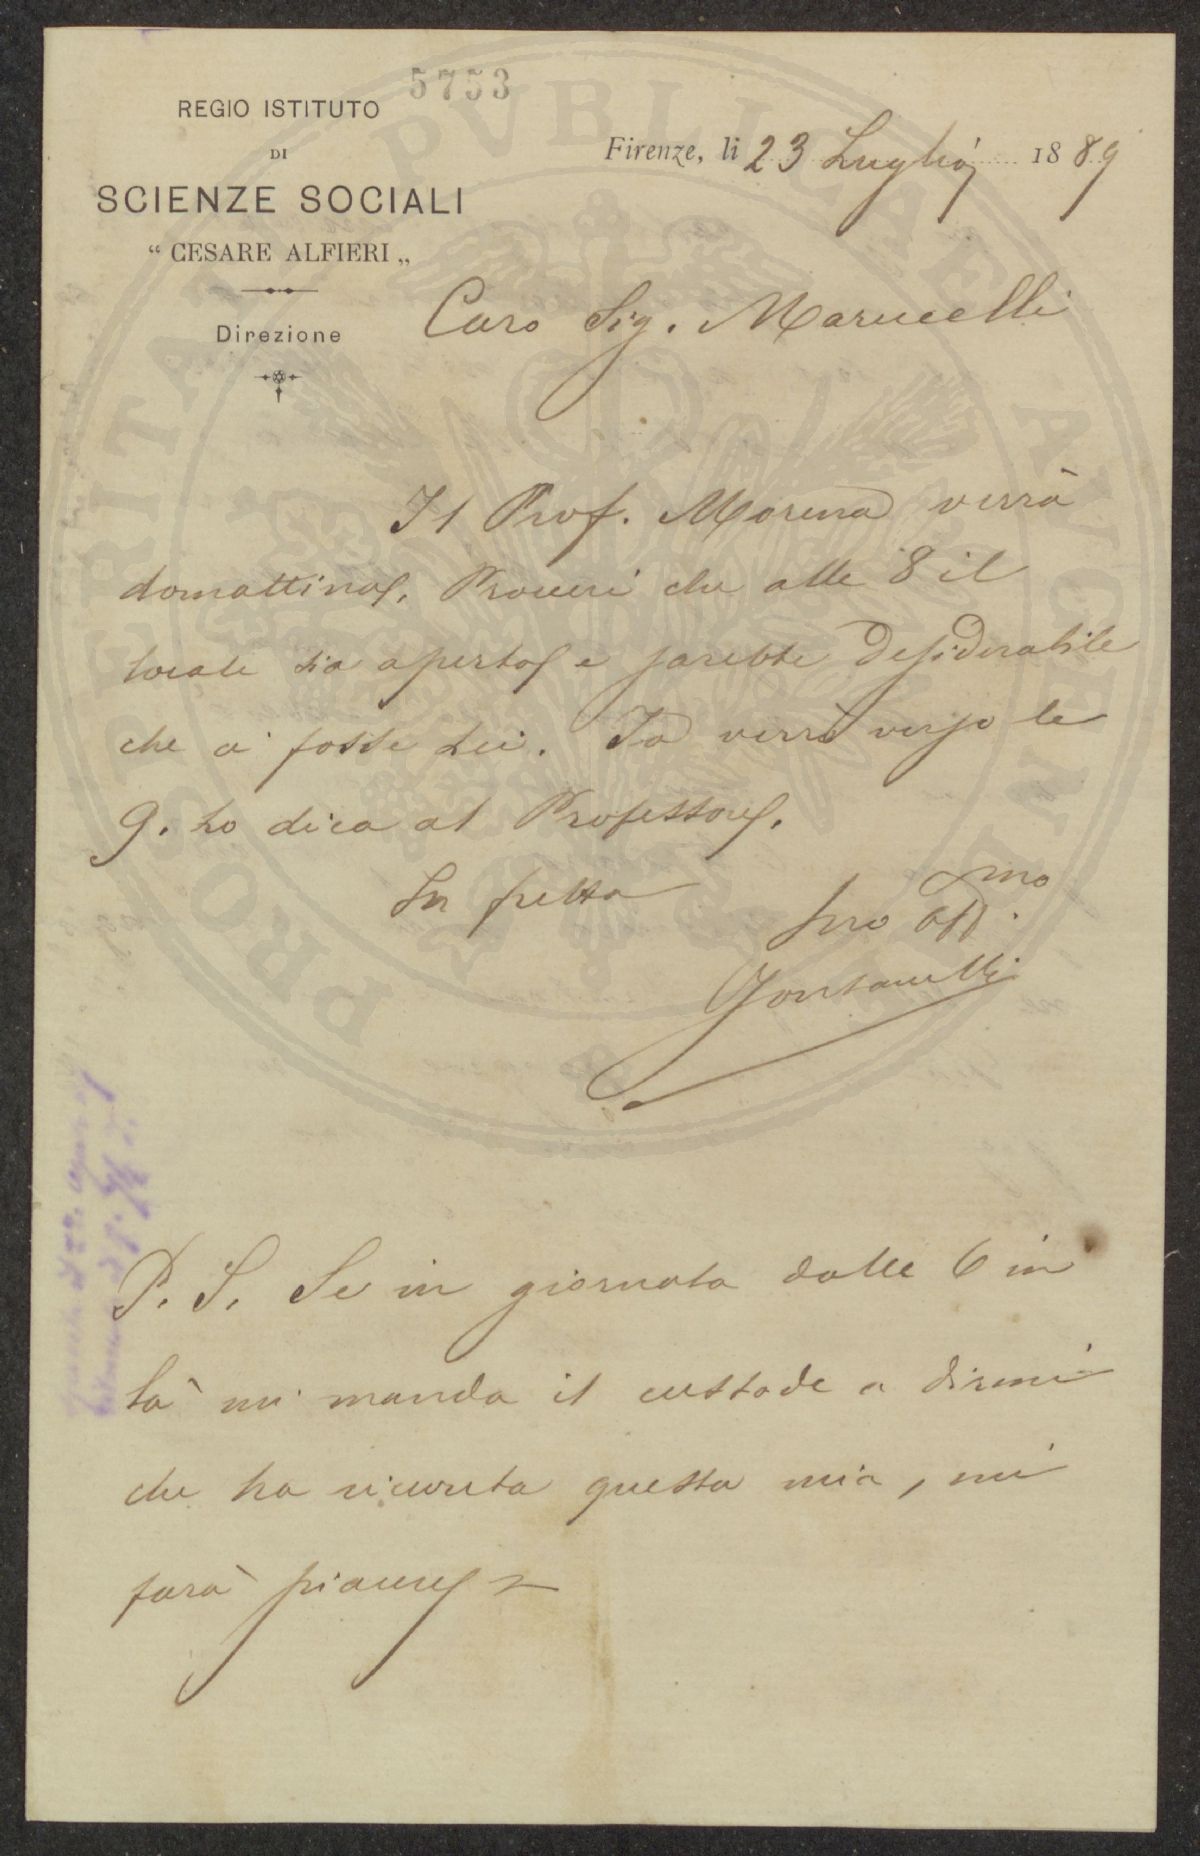 5753
REGIO ISTITUTO
DI
SCIENZE SOCIALI
“ CESARE ALFIERI „
Direzione
Firenze, li 23 Luglio 1889
Caro Sig. Marucelli
Il Prof. Morena verrà
domattina. Procuri che alle 8 il
locale sia aperto e sarebbe desiderabile
che ci fosse Lei. Io verrò verso le
9. Lo dica al Professore.
In fretta
suo aff.mo
Fontanelli
P. S. Se in giornata dalle 6 in
là mi manda il custode a dirmi
che ha ricevuta questa mia, mi
farà piacere
PROSPERITATI PVBLICAE AVGENDAE